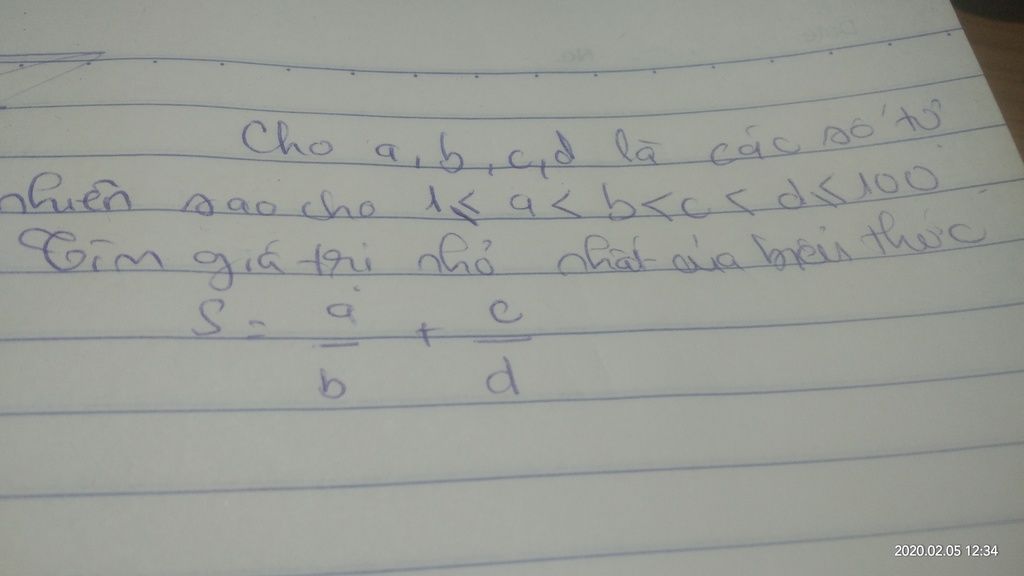 Cho a, b, c, d là các số tự
nhiên sao cho 1 ≤ a < b < c < d ≤ 100
Tìm giá trị nhỏ nhất của biểu thức
S = a/b + c/d
2020.02.05 12:34